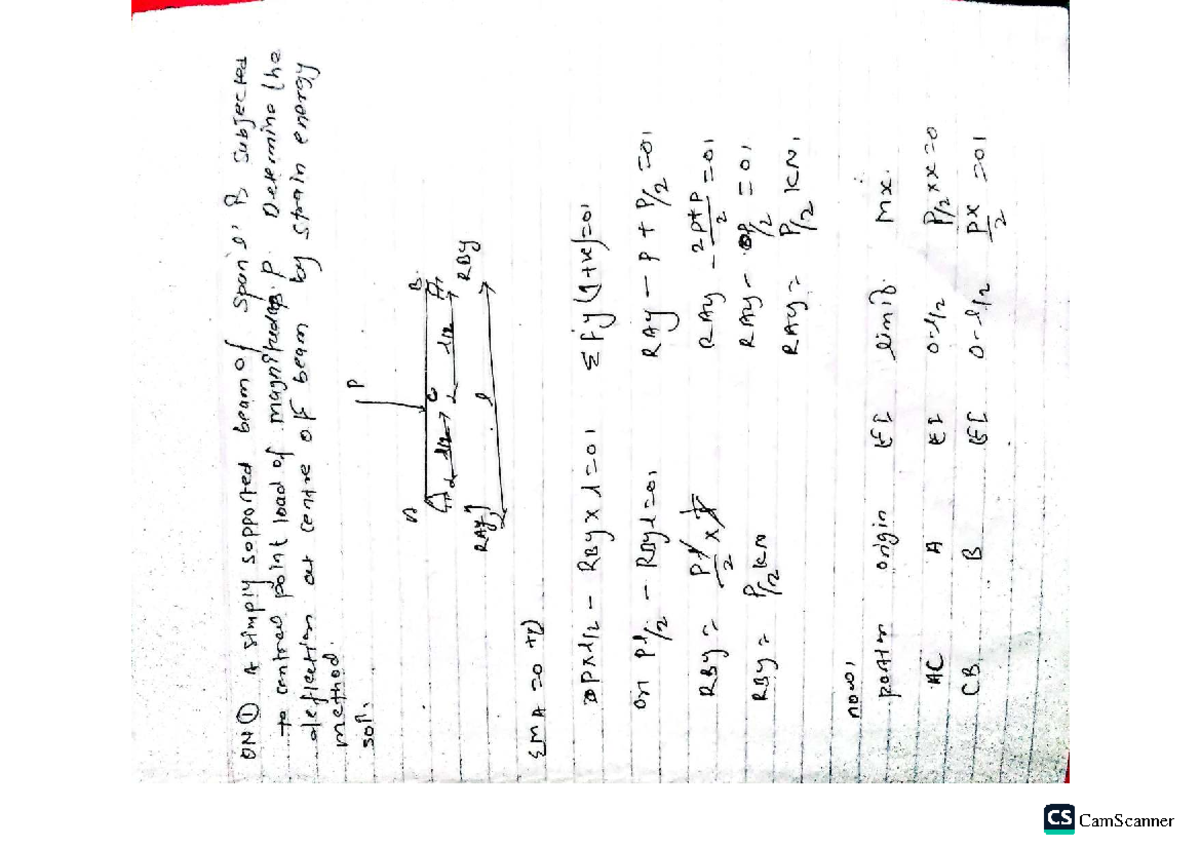 QN① A simply sopported beam of span 'l' is subjected
to central point load of magnitedes P. Determine the
deflection at centre of beam by strain energy
method.
sol.
P
A C B
l/2 l/2
RAy l RBy
ΣMA = 0 +)
P×l/2 - RBy × l = 0, Σfy (↑+ve) = 0,
or Pl/2 - RByl = 0, RAy - P + P/2 = 0,
RBy = Pl/2 × 1/l RAy - 2P+P/2 = 0,
RBy = P/2 KN RAy - P/2 = 0,
RAy = P/2 KN,
now,
portion origin EI limit. Mx.
AC A EI 0-l/2 P/2 × x = 0
CB B EI 0-l/2 Px/2 = 0,
CS CamScanner